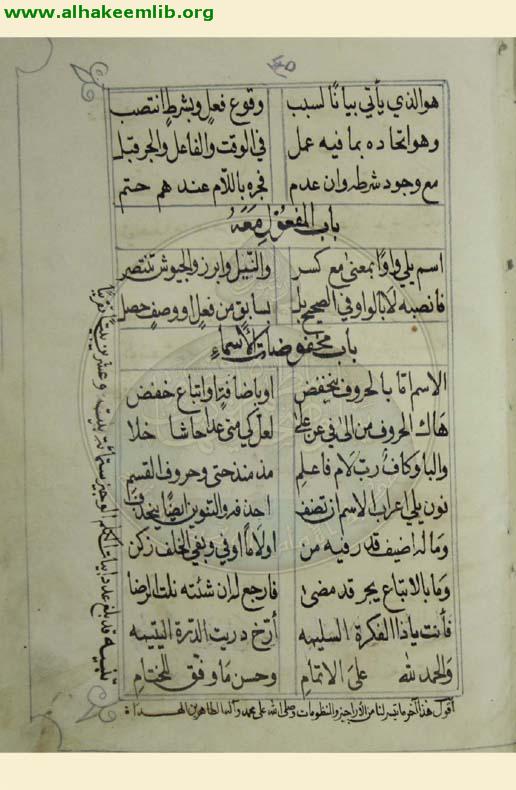 www.alhakeemlib.org
٤٥
هو الذي يأتي بيانًا لسبب وقوع فعل وبشرط انتصب
وهو اتحاده بما فيه عمل في الوقت والفاعل والجر قبل
مع وجود شرطه وان عدم فجره باللام عندهم حتم
باب المفعول معه
اسم يلي واوًا بمعنى مع كسر والنيل وابرز والجيوش تنتصر
فانصبه لا بالواو في الصحيح بل بسابق من فعل او وصف حصل
باب مخفوضات الأسماء
الاسم اما بالحروف ينخفض او باضافة او اتباع خفض
هاك الحروف من الى في عن على لعل كي متى عدا حاشا خلا
والبا وكاف رب لام فاعلم مذ منذ حتى وحروف القسم
نون يلي اعراب الاسم ان تضف احذفه والتنوين ايضًا ينحذف
وما له اضيف قدر فيه من اولامًا او في وبقي الخلف زكن
وما بالاتباع يجر قد مضى فارجع له ان شئته نلت الرضا
فأنت يا ذا الفكرة السليمه أرخ دريت الدرة اليتيمه
والحمد لله على الاتمام وحسن ما وفق للختام
أقول هذا آخر ما تيسر لنا من الأراجيز والمنظومات وصلى الله على محمد وآله الطاهرين الهداة
تنبيه قد بلغ عدد ابيات الكلم الوجيز ستمائة بيت وعشرين بيتًا تقريبًا